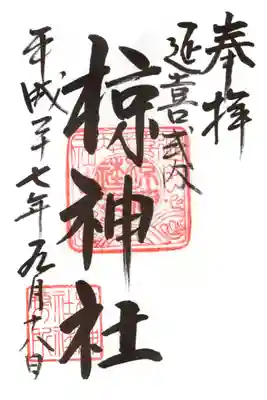 奉拝
延喜式内
椋神社
平成二十七年五月十六日